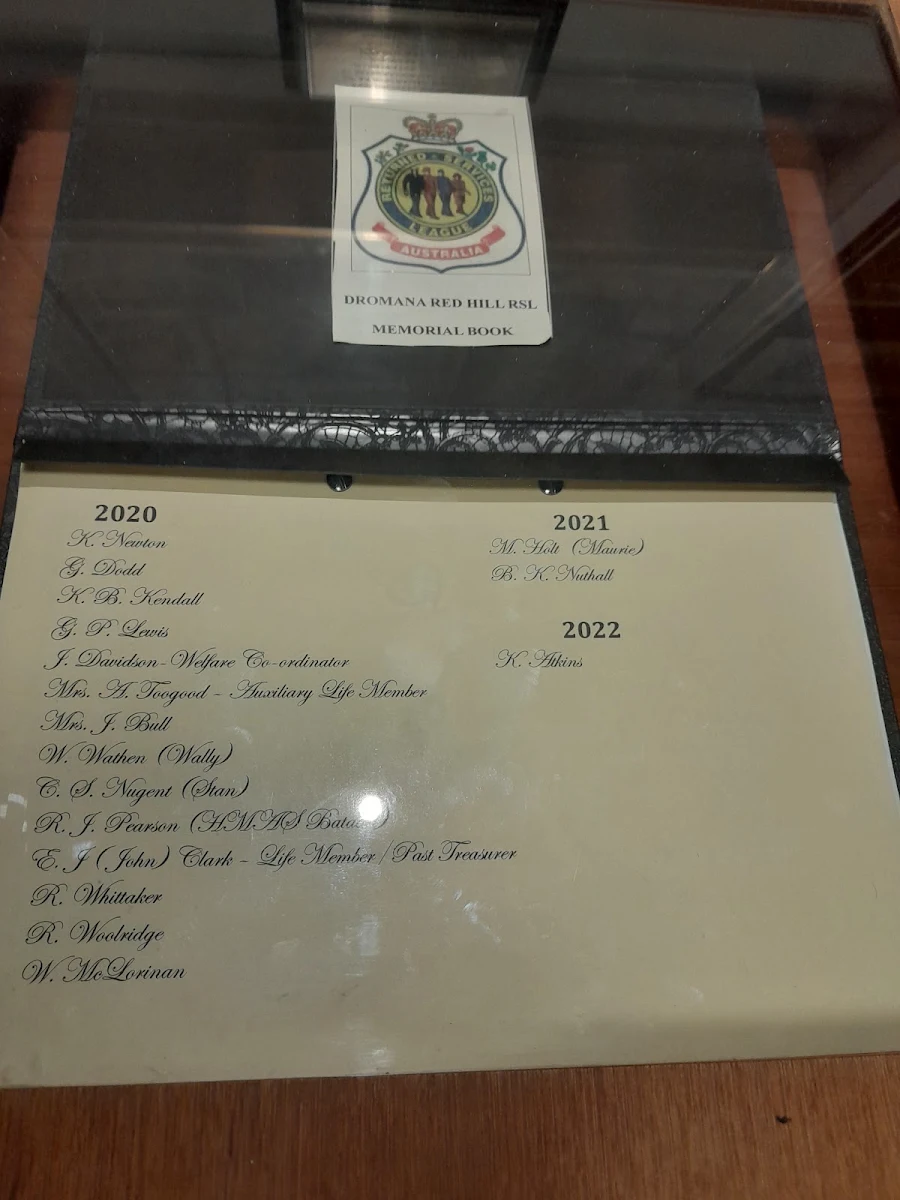 RETURNED SERVICES
LEAGUE
AUSTRALIA
DROMANA RED HILL RSL
MEMORIAL BOOK
2020
K. Newton
G. Dodd
K. B. Kendall
G. P. Lewis
J. Davidson - Welfare Co-ordinator
Mrs. A. Toogood - Auxiliary Life Member
Mrs. J. Bull
W. Wathen (Wally)
C. S. Nugent (Stan)
R. J. Pearson (HMAS
E. J (John) Clark - Life Member / Past Treasurer
R. Whittaker
R. Woolridge
W. McLorinan
2021
M. Holt (Maurie)
B. K. Nuthall
2022
K. Atkins